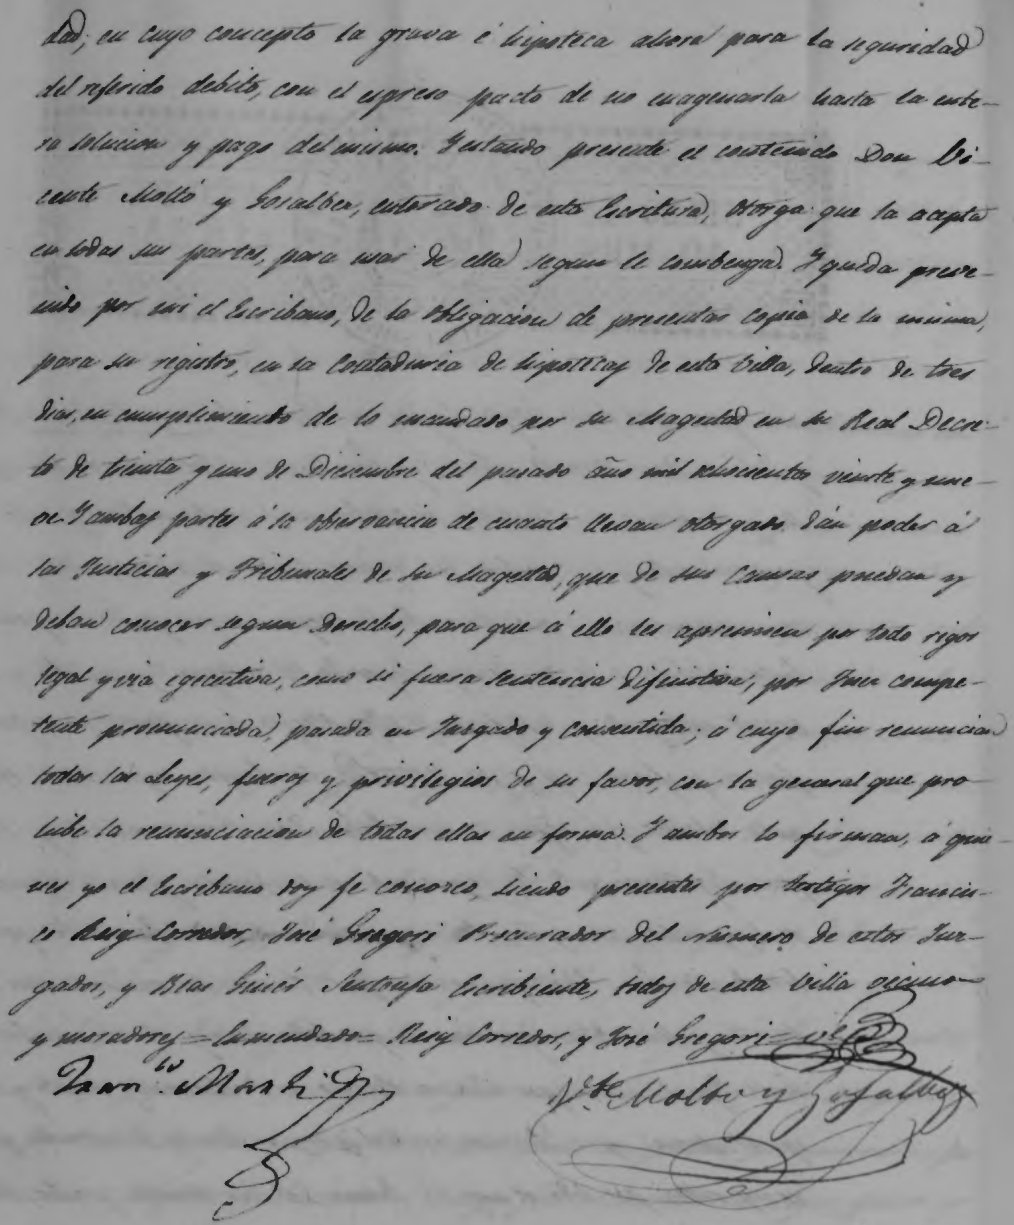 dad; en cuyo concepto la grava é hipoteca ahora para la seguridad
del referido debito, con el espreso pacto de no enagenarla hasta la ente-
ra solucion y pago del mismo. Y estando presente el contenido Don Vi-
cente Moltó y Gosalbez, enterado de esta Escritura, otorga: que la acepta
en todas sus partes, para usar de ella segun le combenga. Y queda preve-
nido por mi el Escribano, de la obligacion de presentar copia de la misma,
para su registro, en la Contaduria de hipotecas de esta Villa, dentro de tres
dias, en cumplimiento de lo mandado por su Magestad en su Real Decre-
to de treinta y uno de Diciembre del pasado año mil ochocientos veinte y nue-
ve. Y ambas partes á la observancia de cuanto llevan otorgado dán poder á
las Justicias y Tribunales de su Magestad, que de sus Causas puedan y
deban conocer segun Derecho, para que á ello les apremien por todo rigor
legal y via egecutiva, como si fuera Sentencia difinitiva, por Juez compe-
tente pronunciada, pasada en Juzgado y consentida; á cuyo fin renuncian
todas las Leyes, fueros y privilegios de su favor, con la general que pro-
hibe la renunciacion de todas ellas en forma. Y ambos lo firman, á quie-
nes yo el Escribano doy fe conozco, siendo presentes por testigos Francis-
co Reig Corredor, José Gregori Procurador del Número de estos Juz-
gados, y Blas Ginés Sentonja Escribiente, todos de esta Villa vecinos
y moradores = Enmendado = Reig Corredor, y José Gregori =
Fran.co
V.te Molto y Gosalbez